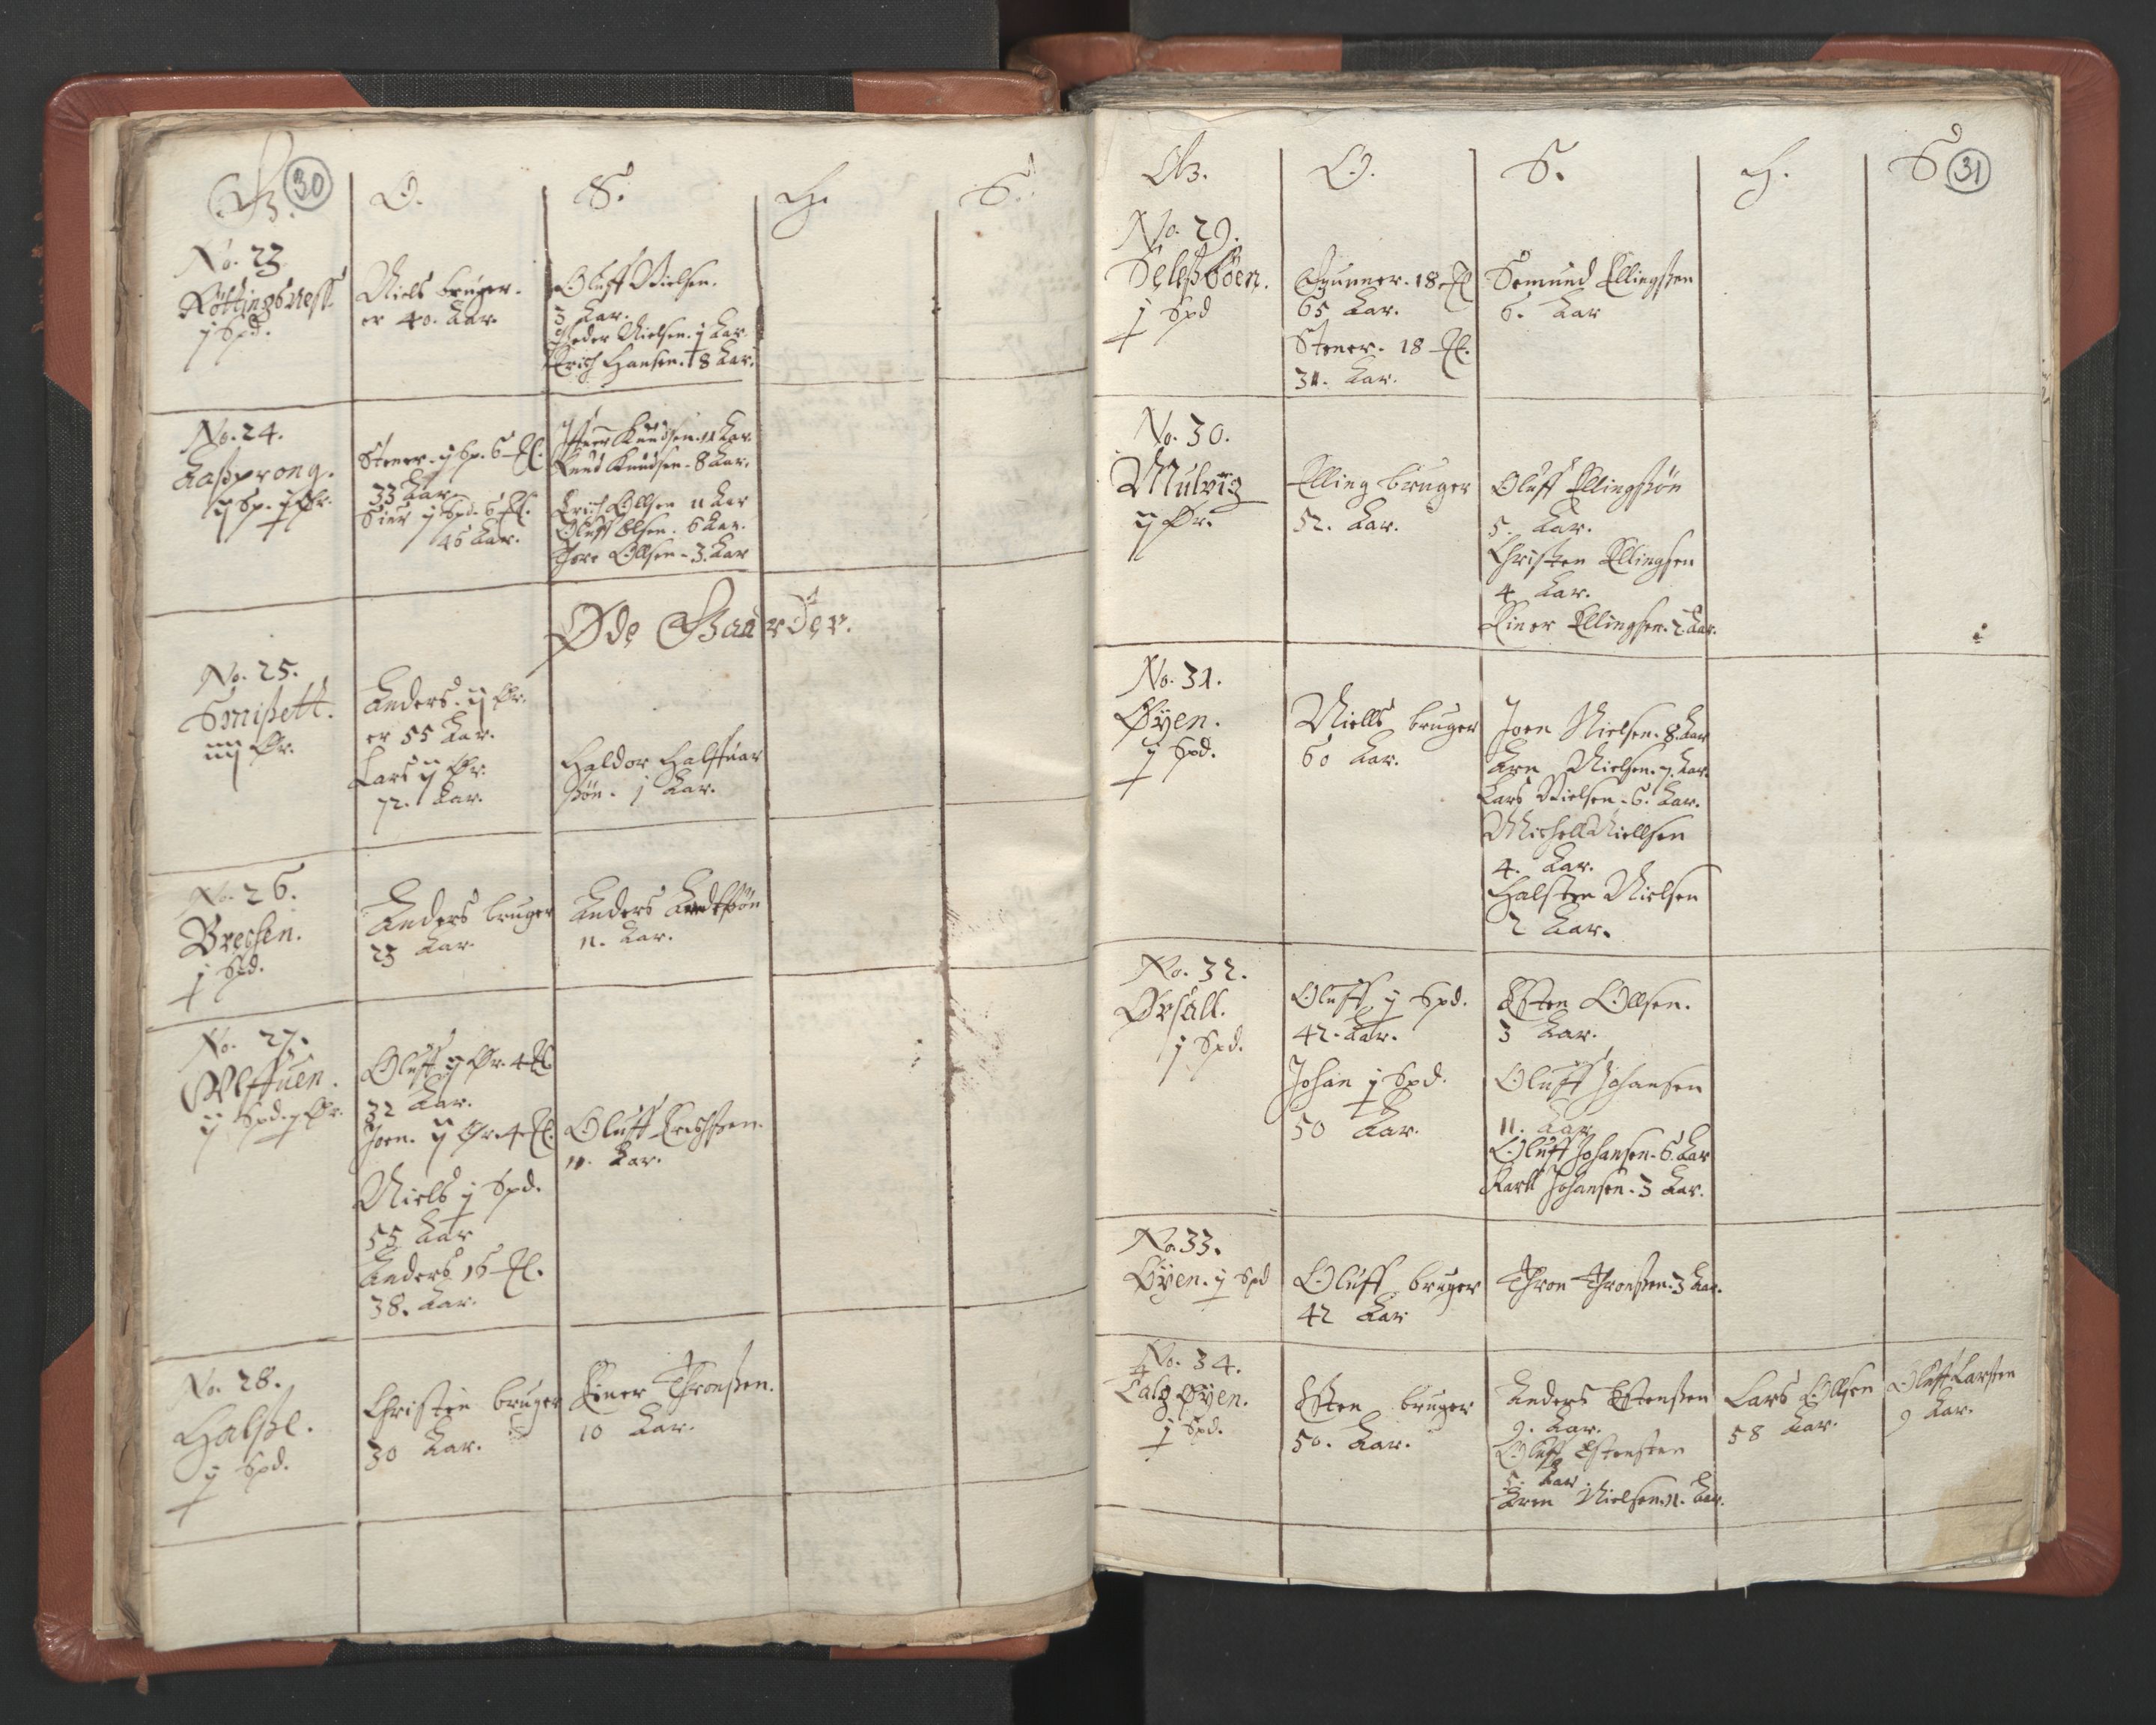 30
G. O. S. H. S.
No. 23.
Røttingsness.
j Spd.
Niels bruger.
er 40. Aar.
Oluff Nielsen.
3 Aar.
Peder Nielsen. j Aar.
Erich Hansen. 18 Aar.
No. 24.
Kaßprong.
Stener. j Sp. 6
33 Aar.
Siur j Spd. 6
46 Aar.
Knudsen. 11 Aar
Knud Knudsen. 8 Aar.
Erich Ollsen 11 Aar
Oluff Olsen. 6 Aar.
Tore Ollsen. 3. Aar
Øde Gaarder.
No. 25.
Smißett.
iiij Ør.
Anders. ij Ør.
er 55 Aar.
Lars ij Ør.
72. Aar.
Haldor Halffuar
ßøn. j Aar.
No. 26.
Brecken.
j Spd.
Anders bruger
23 Aar.
Anders
11. Aar.
No. 27.
Ulffuen.
Oluff ij Ør. 4
32 Aar.
Joen. ij Ør. 4
Niels j Spd.
55 Aar
Anders 16
38. Aar.
Oluff Erichßen.
11. Aar.
No. 28.
Halße.
j Spd.
Christen bruger
30 Aar.
Einer Thronßen.
10 Aar.
31
G. O. S. H. S
No. 29.
Selesbøen.
j Spd
Gunner. 18
65 Aar.
Stener. 18
31. Aar.
Semund Ellingßen
6. Aar
No. 30.
Mulvig
ij Ør.
Elling bruger
52. Aar.
Oluff Ellingßøn
5. Aar.
Christen Ellingsen
4 Aar.
Einer Ellingsen. 2. Aar.
No. 31.
Øyen.
j Spd.
Niells bruger
60 Aar.
Joen Nielsen. 8. Aar
Arn Nielsen. 7. Aar.
Lars Nielsen. 6. Aar.
Michell Niellsen
4. Aar.
Halsten Nielsen
2 Aar.
No. 32.
Ørsall.
j Spd.
Oluff j Spd.
42. Aar.
Johan j Spd.
50 Aar.
Esten Ollsen.
3 Aar.
Oluff Johansen
11. Aar
Oluff Johansen. 6. Aar
Karll Johansen. 3 Aar.
No. 33.
Øyen. j Spd
Oluff bruger
42 Aar
Thron Thronßen. 3 Aar.
No. 34.
Øyen.
j Spd.
Esten bruger
50. Aar.
Anders Estenßen
9. Aar.
Oluff Estensen
5. Aar.
Arn Nielsen. 11. Aar.
Lars Ollsen
58 Aar.
Oluff Larsen
9 Aar.